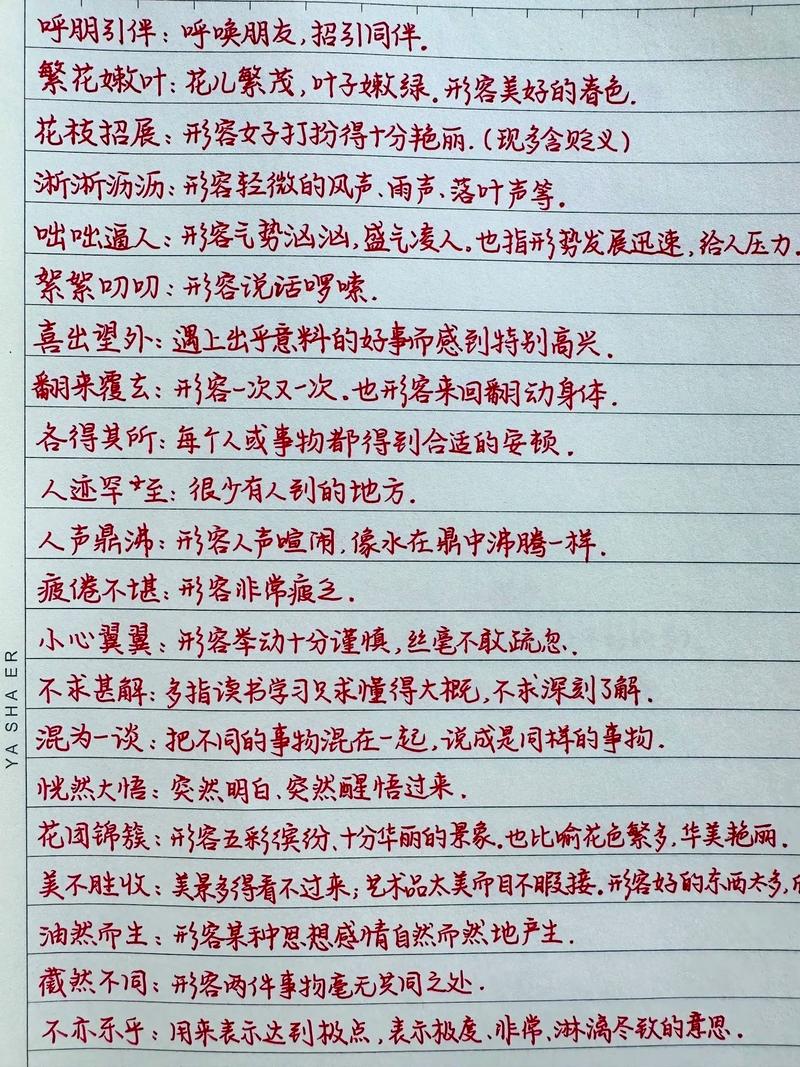 呼朋引伴：呼唤朋友，招引同伴。
繁花嫩叶：花儿繁茂，叶子嫩绿。形容美好的春色。
花枝招展：形容女子打扮得十分艳丽。（现多含贬义）
淅淅沥沥：形容轻微的风声、雨声、落叶声等。
咄咄逼人：形容气势汹汹，盛气凌人。也指形势发展迅速，给人压力。
絮絮叨叨：形容说话啰嗦。
喜出望外：遇上出乎意料的好事而感到特别高兴。
翻来覆去：形容一次又一次。也形容来回翻动身体。
各得其所：每个人或事物都得到合适的安顿。
人迹罕至：很少有人到的地方。
人声鼎沸：形容人声喧闹，像水在鼎中沸腾一样。
疲倦不堪：形容非常疲乏。
小心翼翼：形容举动十分谨慎，丝毫不敢疏忽。
不求甚解：多指读书学习只求懂得大概，不求深刻了解。
混为一谈：把不同的事物混在一起，说成是同样的事物。
恍然大悟：突然明白、突然醒悟过来。
花团锦簇：形容五彩缤纷、十分华丽的景象。也比喻花色繁多，华美艳丽。
美不胜收：美景多得看不过来；艺术品太美而目不暇接。形容好的东西太多，
油然而生：形容某种思想感情自然而然地产生。
截然不同：形容两件事物毫无共同之处。
不亦乐乎：用来表示达到极点，表示极度、非常、淋漓尽致的意思。
YA SHA ER